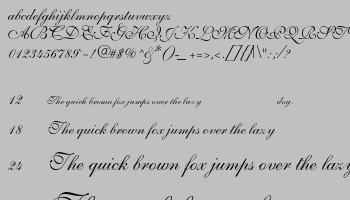 abcdefghijklmnopqrstuvwxyz
ABCDEFGHIJKLMNOPQRST
0123456789~!@#$%^&*()-_ +=>,<.[]{}/\|":;/?
12 The quick brown fox jumps over the lazy dog.
18 The quick brown fox jumps over the lazy
24 The quick brown fox jumps over the lazy